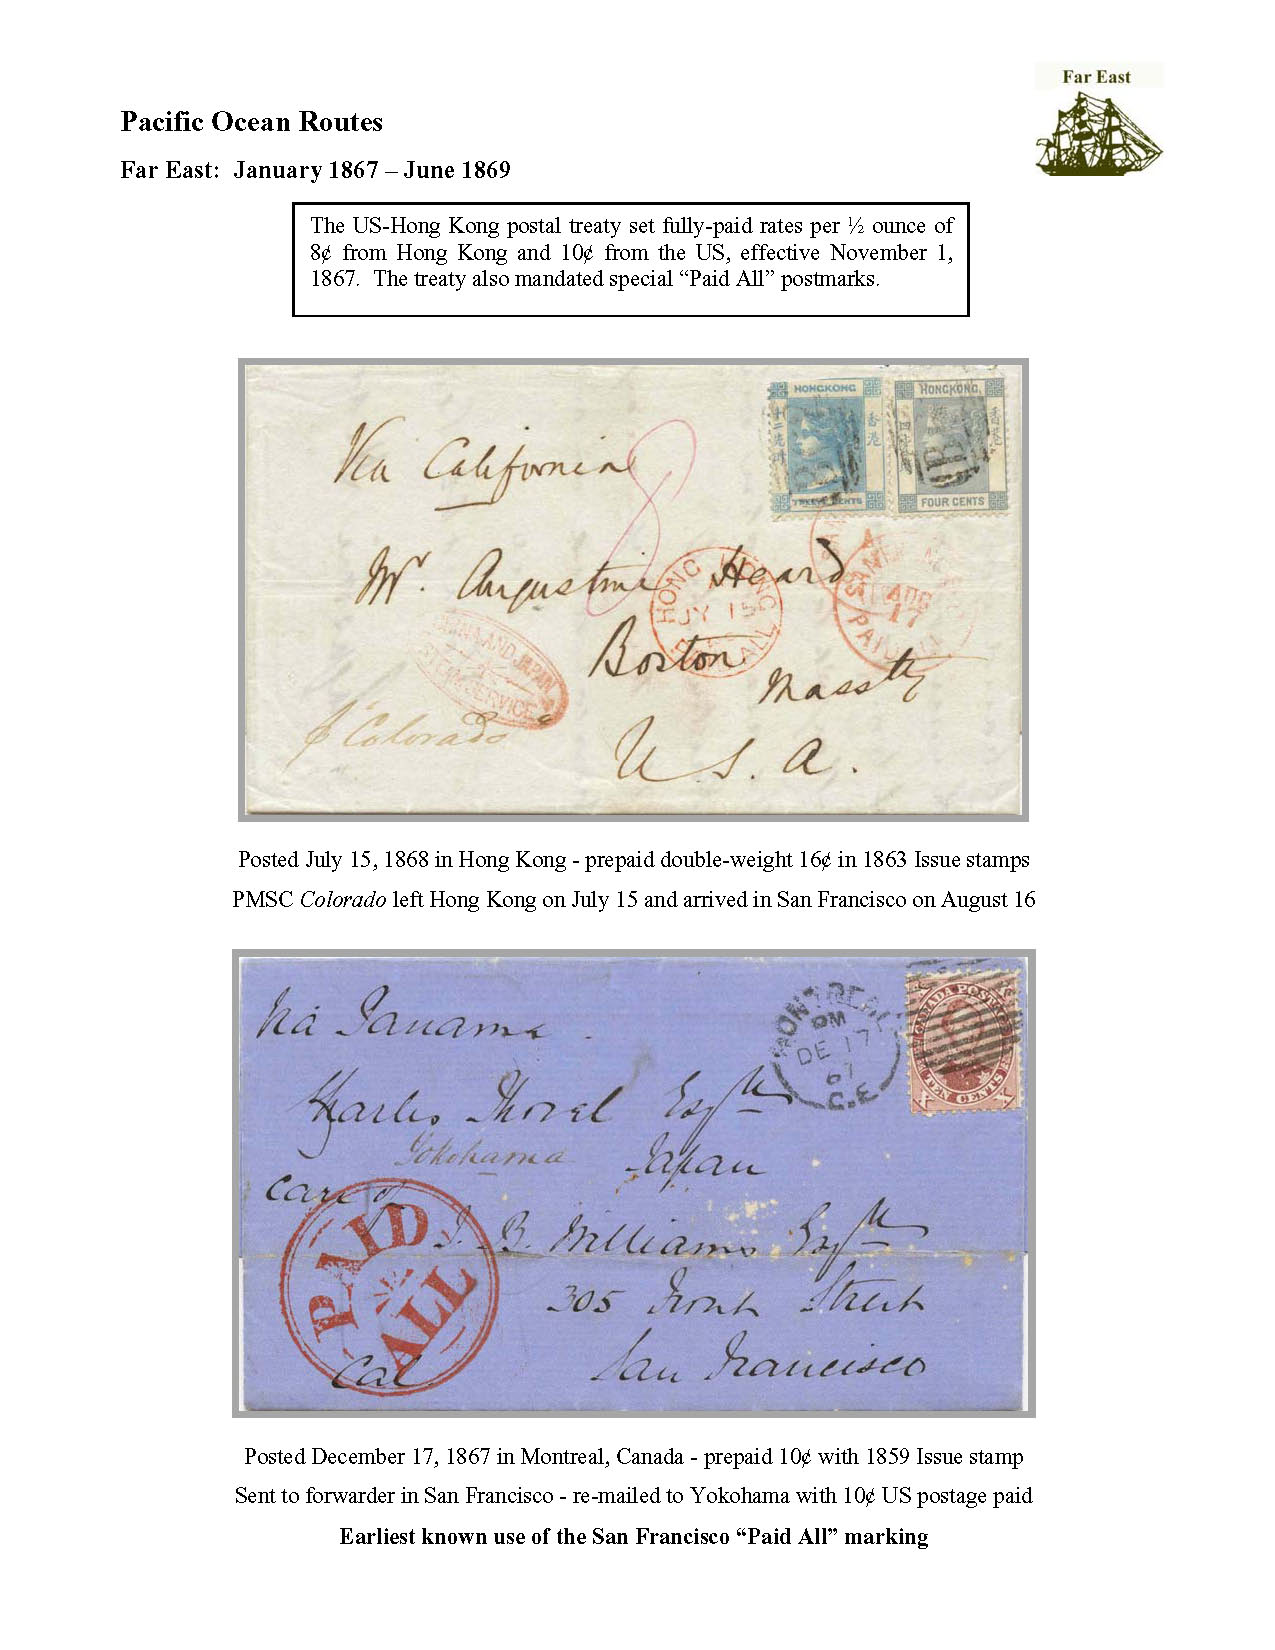 Far East
Pacific Ocean Routes
Far East:  January 1867 – June 1869
The US-Hong Kong postal treaty set fully-paid rates per ½ ounce of
8¢ from Hong Kong and 10¢ from the US, effective November 1,
1867.  The treaty also mandated special “Paid All” postmarks.
HONGKONG
十二先時
香港
TWELVE CENTS
B
HONGKONG
香港
FOUR CENTS
B
Via California
8
Mr. Augustine Heard
HONG KONG
JY 15
PAID ALL
SAN
AUG
17
PAID ALL
Boston
Masstts
U.S.A.
CHINA AND JAPAN
STEAM SERVICE
pr Colorado
Posted July 15, 1868 in Hong Kong - prepaid double-weight 16¢ in 1863 Issue stamps
PMSC Colorado left Hong Kong on July 15 and arrived in San Francisco on August 16
Via Panama
MONTREAL
PM
DE 17
67
C.E
CANADA POSTAGE
TEN CENTS
X X
Charles Thorel Esqre
Yokohama Japan
Care of
J. B. Williams Esqre
305 Front Street
San Francisco
Cal
PAID
ALL
Posted December 17, 1867 in Montreal, Canada - prepaid 10¢ with 1859 Issue stamp
Sent to forwarder in San Francisco - re-mailed to Yokohama with 10¢ US postage paid
Earliest known use of the San Francisco “Paid All” marking